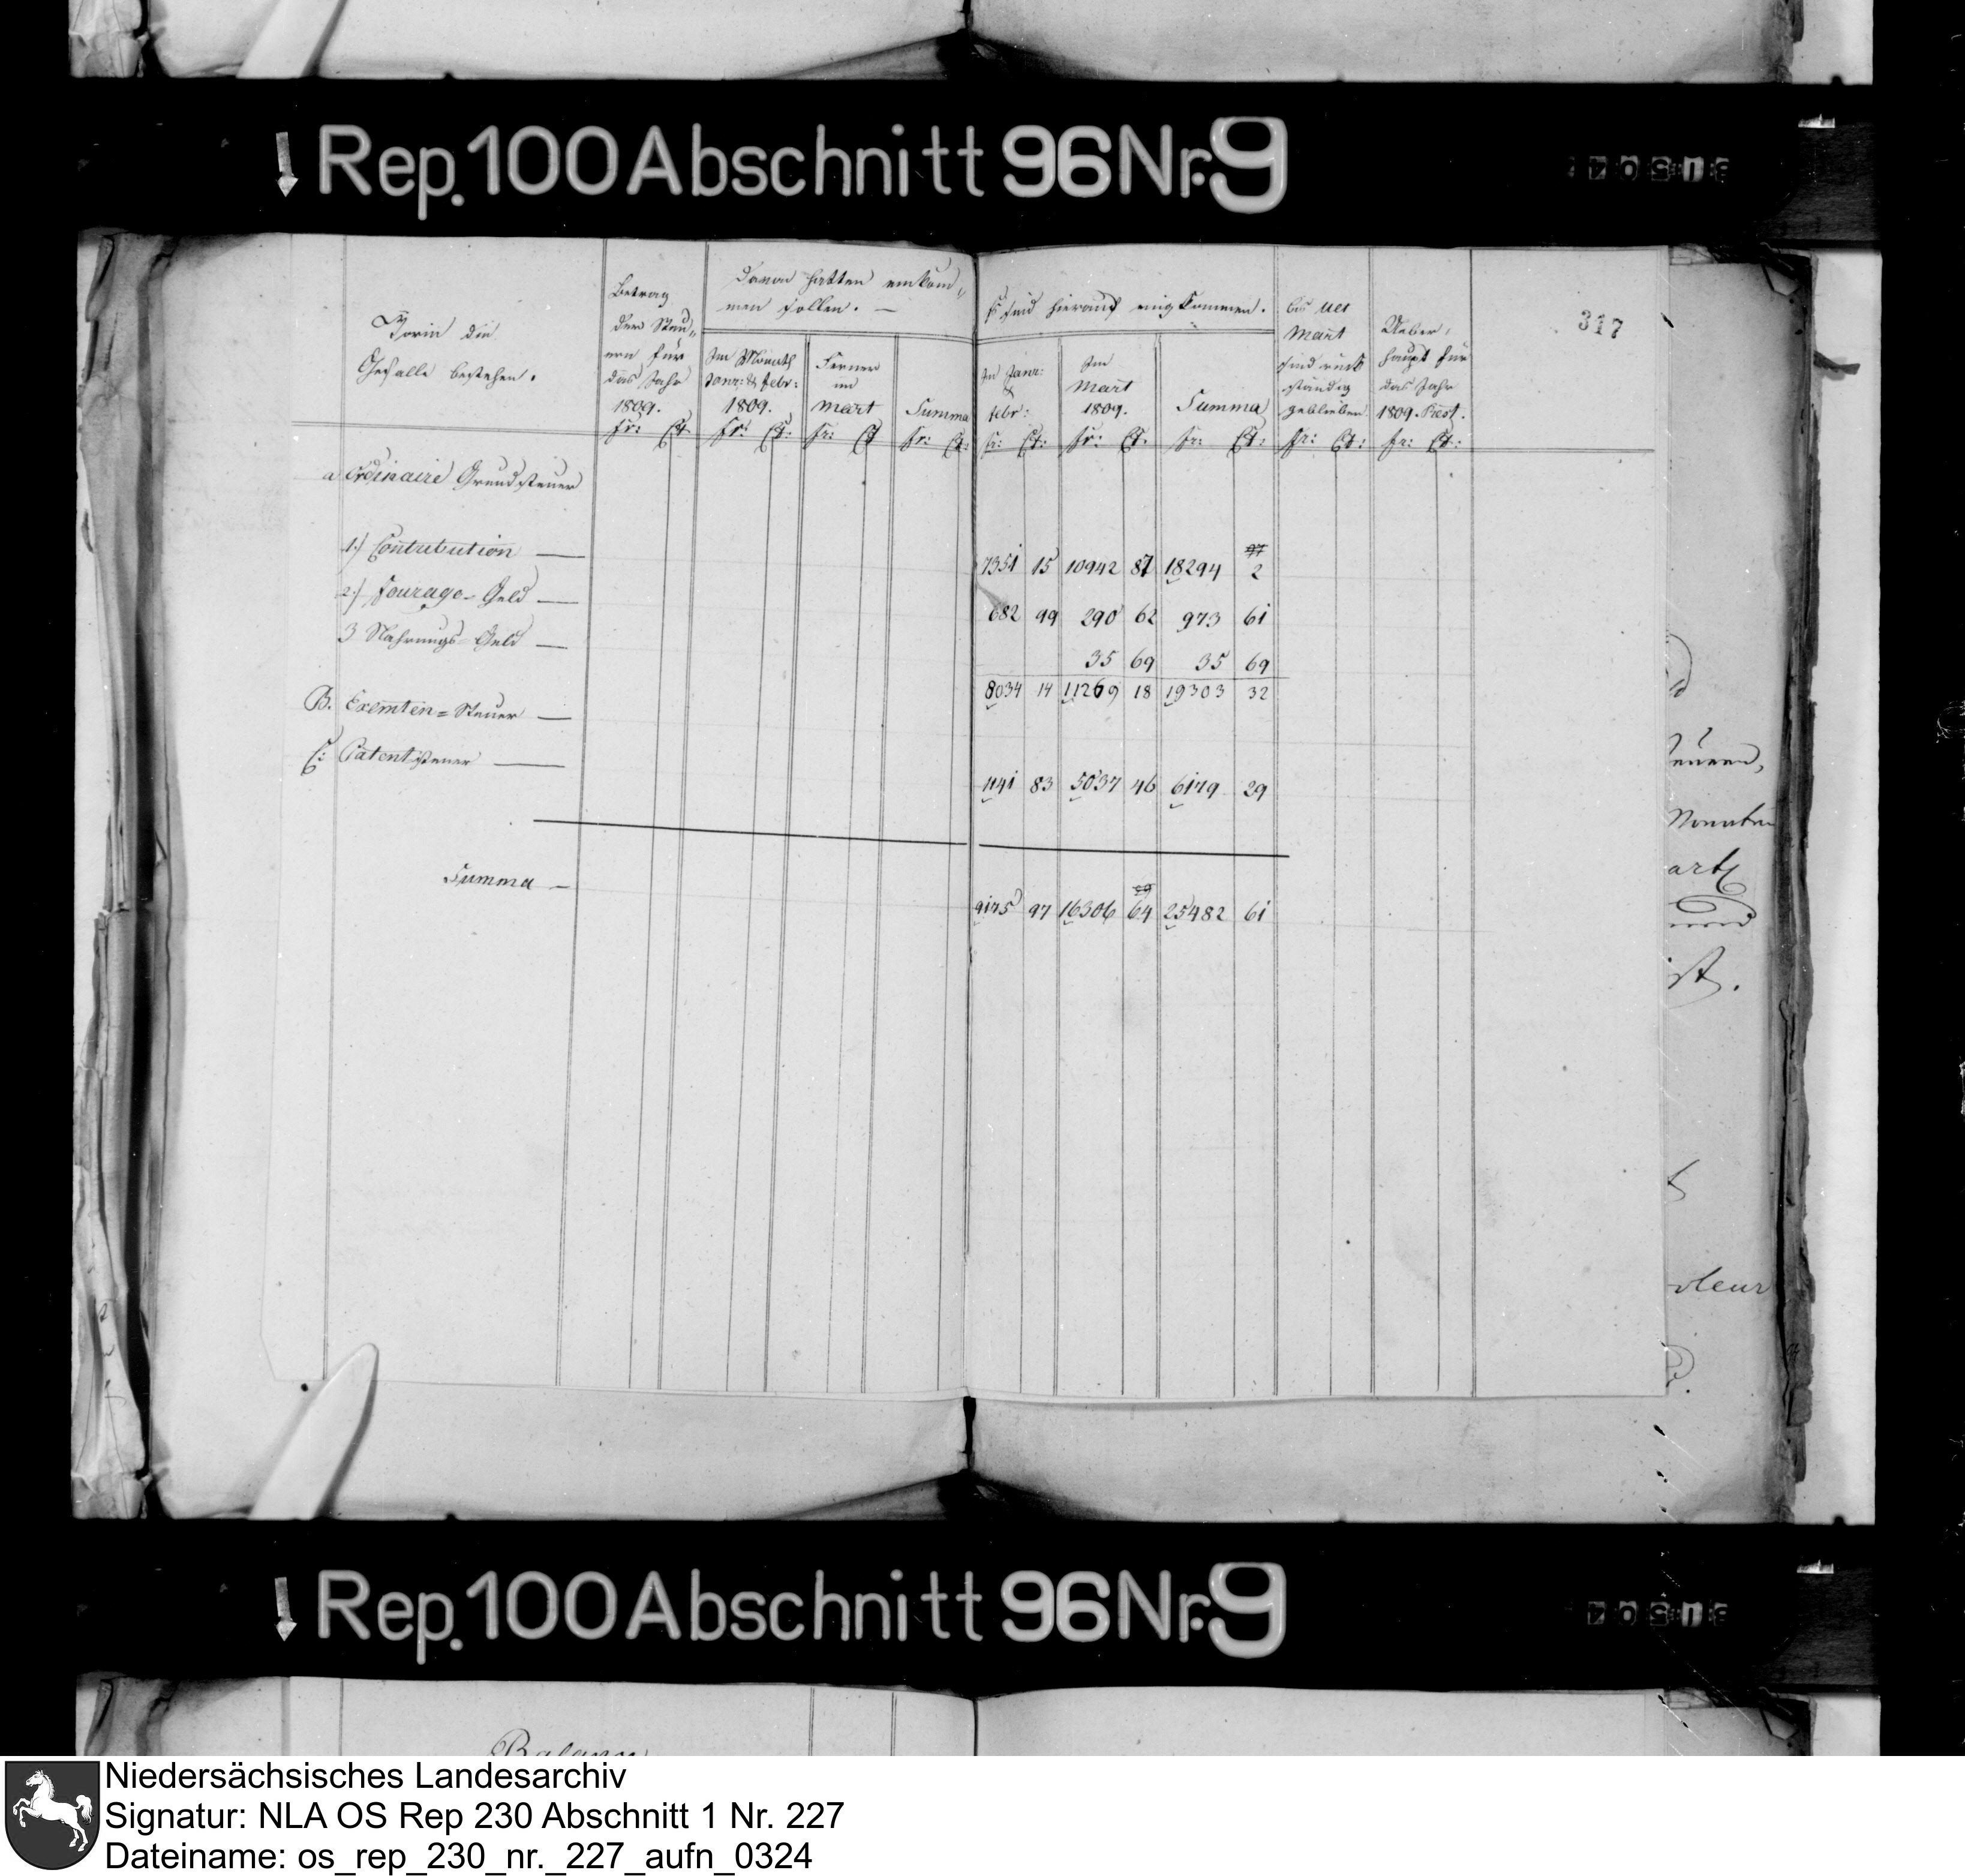 Rep. 100 Abschnitt 96 Nr. 9
31504
317
Worin die
Gefälle bestehen.
Betrag
der Steu,,
ern für
das Jahr
1809.
fr: Ct.
Davon hätten einkom,,
men sollen. —
Im Monath
Janr: & Febr:
1809.
fr: Ct:
Ferner
im
Mart
fr: Ct
Summa
fr: Ct:
Es sind hierauf eingekommen.
In Janr:
&
febr:
fr: Ct:
Im
Mart
1809.
fr: Ct.
Summa
fr: Ct:
bis
Mart
sind rück
ständig
geblieben.
fr: Ct:
Ueber,
haupt für
das Jahr
1809. Rest.
fr: Ct:
a Ordinaire Grundsteuer
1.) Contribution — 7351 15 10942 87 18294 2
2.) Fourage-Geld — 682 99 290 62 973 61
3 Nahrungs-Geld — 35 69 35 69
8034 14 11269 18 19303 32
B. Exemten=Steuer —
C: Patentsteuer — 1141 83 5037 46 6179 29
Summa — 9175 97 16306 64 25482 61
Monaten
Rep. 100 Abschnitt 96 Nr. 9
31504
Balance
Niedersächsisches Landesarchiv
Signatur: NLA OS Rep 230 Abschnitt 1 Nr. 227
Dateiname: os_rep_230_nr._227_aufn_0324